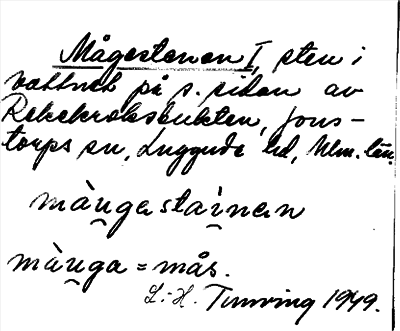 Mågestenen I, sten i
vattnet på s. sidan av
Rekekroksbukten, Jons-
torps sn, Luggude hd, Mlm. län.
màu̯gastai̯nan
màu̯ga = mås.
L:H. Tunving 1949.